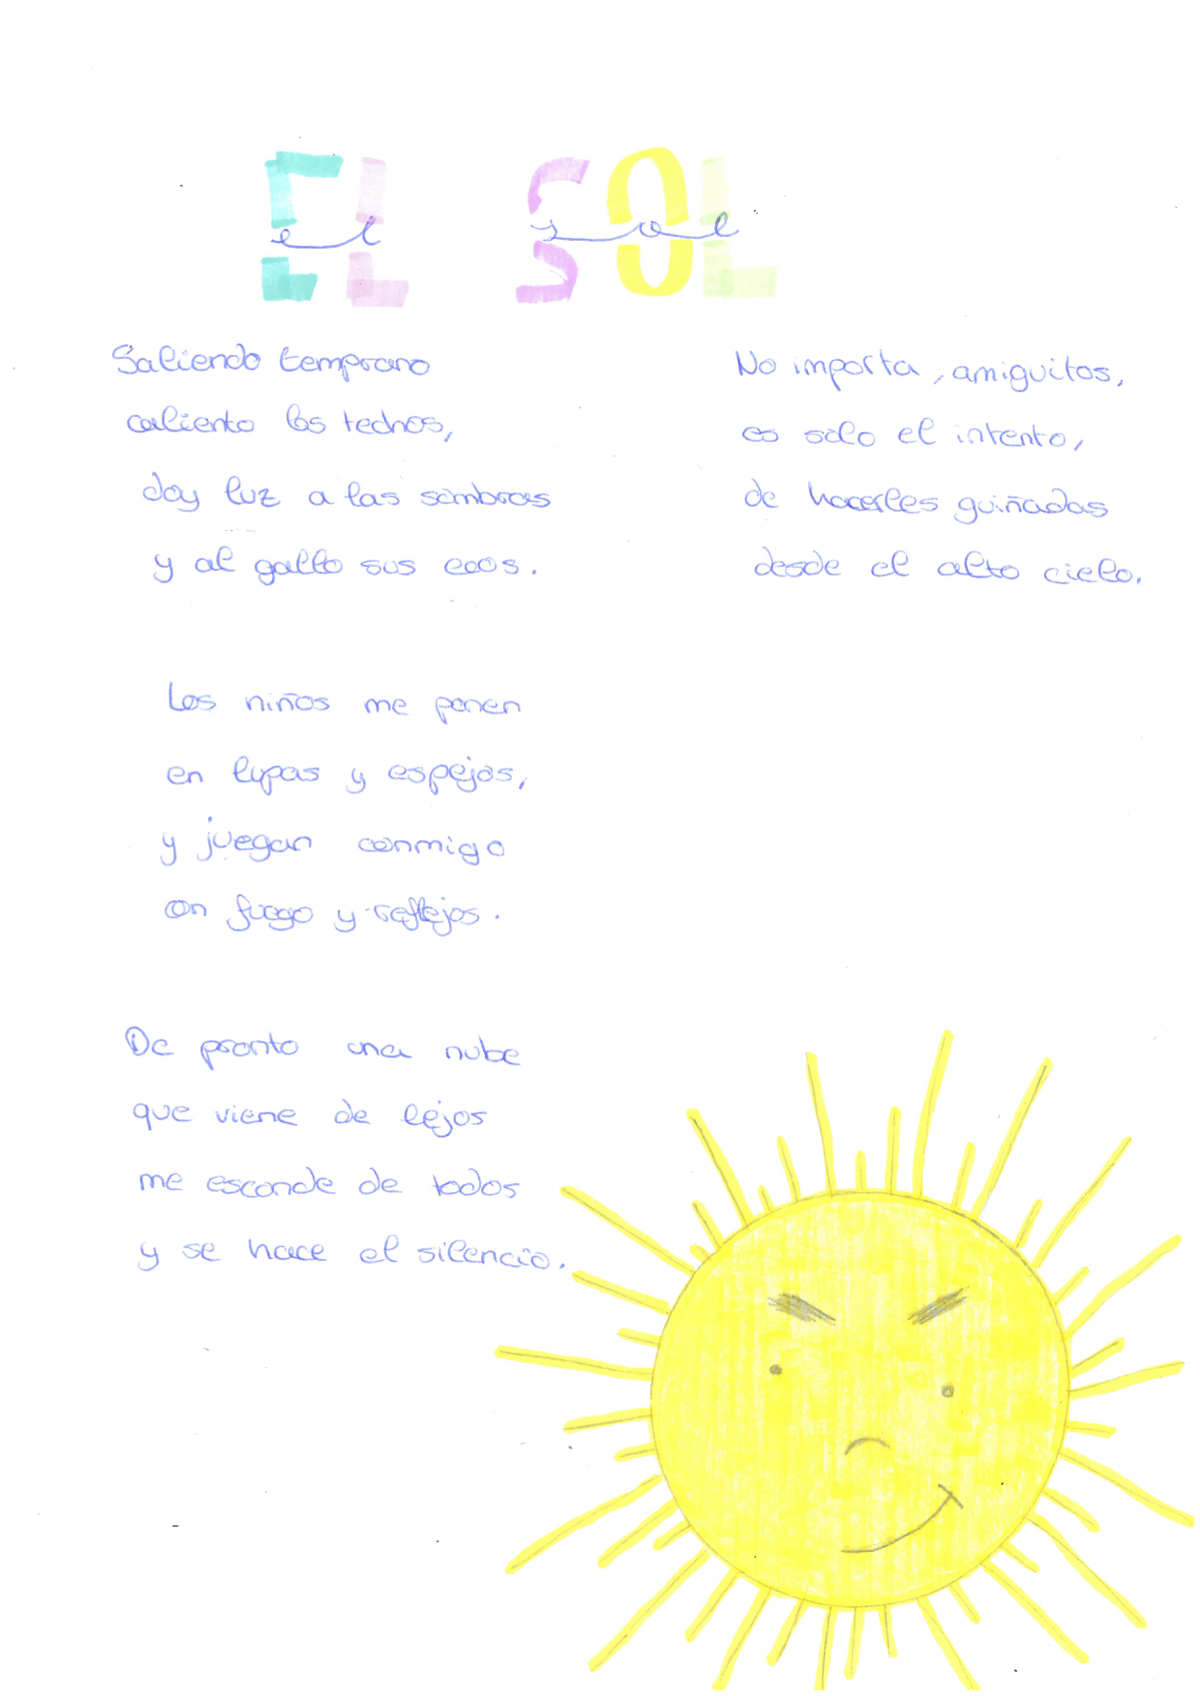 EL SOL
el sol
Saliendo temprano
caliento los techos,
doy luz a las sombras
y al gallo sus ecos.
Los niños me ponen
en lupas y espejos,
y juegan conmigo
con fuego y reflejos.
De pronto una nube
que viene de lejos
me esconde de todos
y se hace el silencio.
No importa, amiguitos,
es solo el intento,
de hacerles guiñadas
desde el alto cielo.